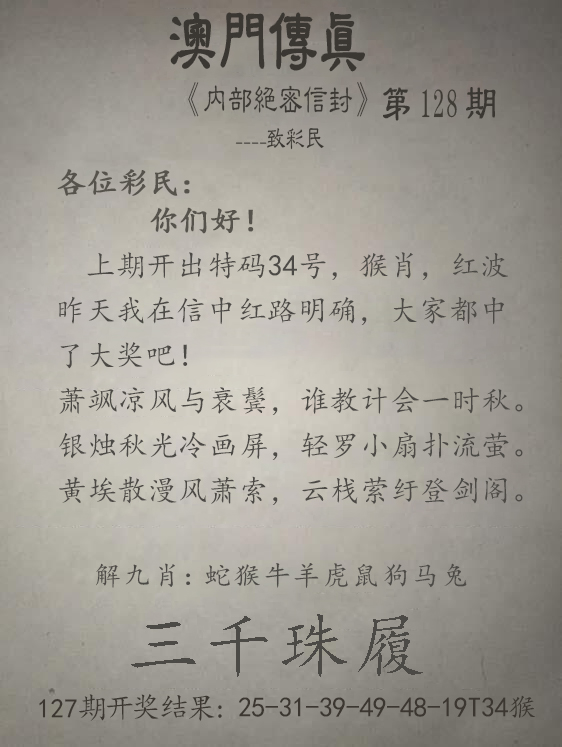 澳門傳眞
《内部絕密信封》第128期
----致彩民
各位彩民：
你们好！
上期开出特码34号，猴肖，红波
昨天我在信中红路明确，大家都中
了大奖吧！
萧飒凉风与衰鬓，谁教计会一时秋。
银烛秋光冷画屏，轻罗小扇扑流萤。
黄埃散漫风萧索，云栈萦纡登剑阁。
解九肖：蛇猴牛羊虎鼠狗马兔
三千珠履
127期开奖结果：25-31-39-49-48-19T34猴